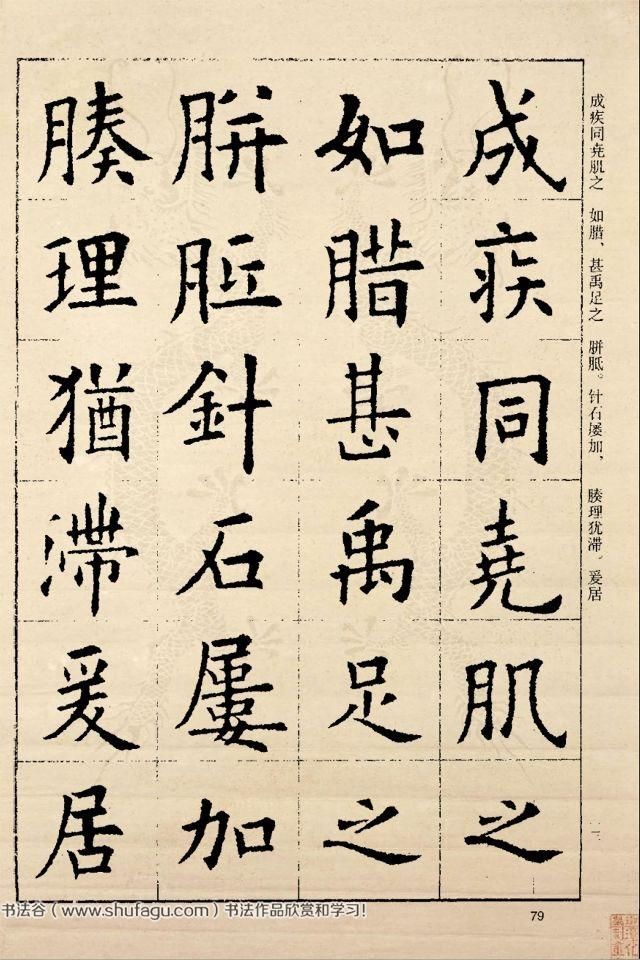 成疾同尭肌之
如腊甚禹足之
胼胝針石屢加
腠理猶滯爰居
成疾同尭肌之　如腊、甚禹足之　胼胝。针石屡加，　腠理犹滞。爰居
书法谷（www.shufagu.com）书法作品欣赏和学习！
79